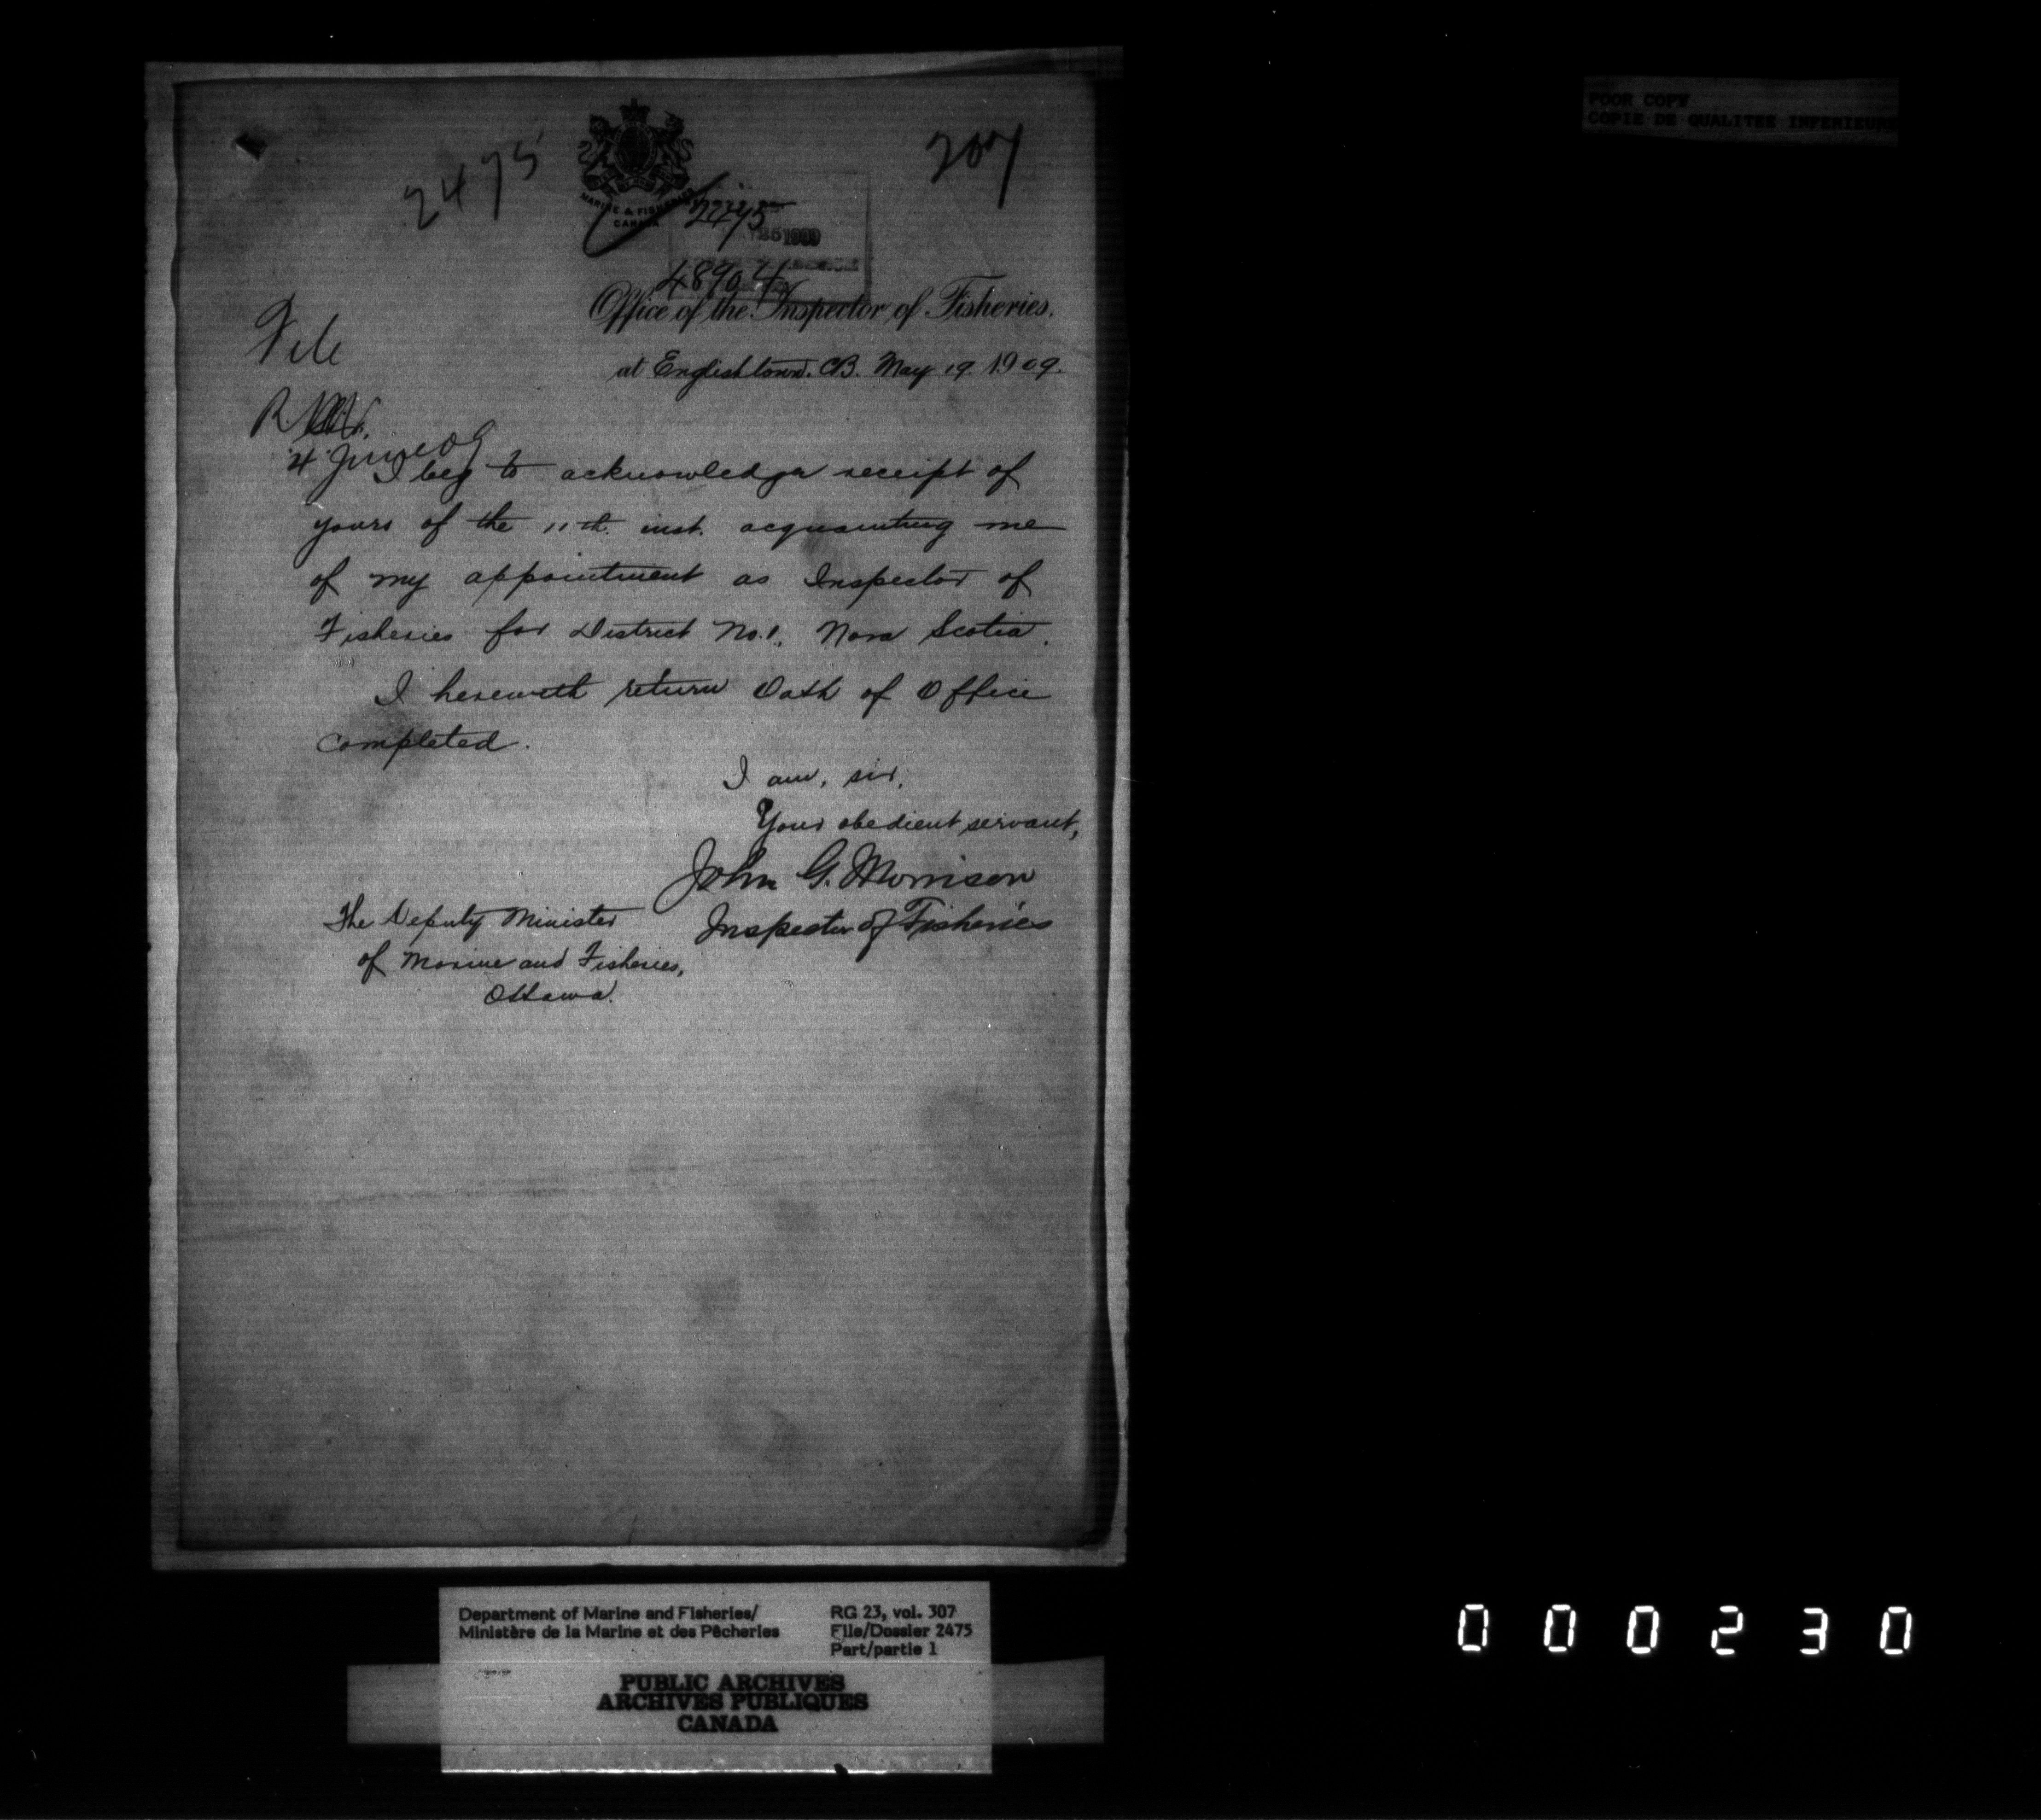 POOR COPY
COPIE DE QUALITEE INFERIEURE
2475
207
MARINE & FISHERIES
CANADA
2475
25 1909
48904
Office of the Inspector of Fisheries.
at Englishtown. C.B. May 19. 1909.
File
4 June 09
I beg to acknowledge receipt of
yours of the 11th. inst. acquainting me
of my appointment as Inspector of
Fisheries for District No. 1, Nova Scotia.
I herewith return Oath of Office
completed.
I am, sir,
Your obedient servant,
John G. Morrison
Inspector of Fisheries
The Deputy Minister
of Marine and Fisheries,
Ottawa.
Department of Marine and Fisheries/
Ministère de la Marine et des Pêcheries
RG 23, vol. 307
File/Dossier 2475
Part/partie 1
PUBLIC ARCHIVES
ARCHIVES PUBLIQUES
CANADA
000230